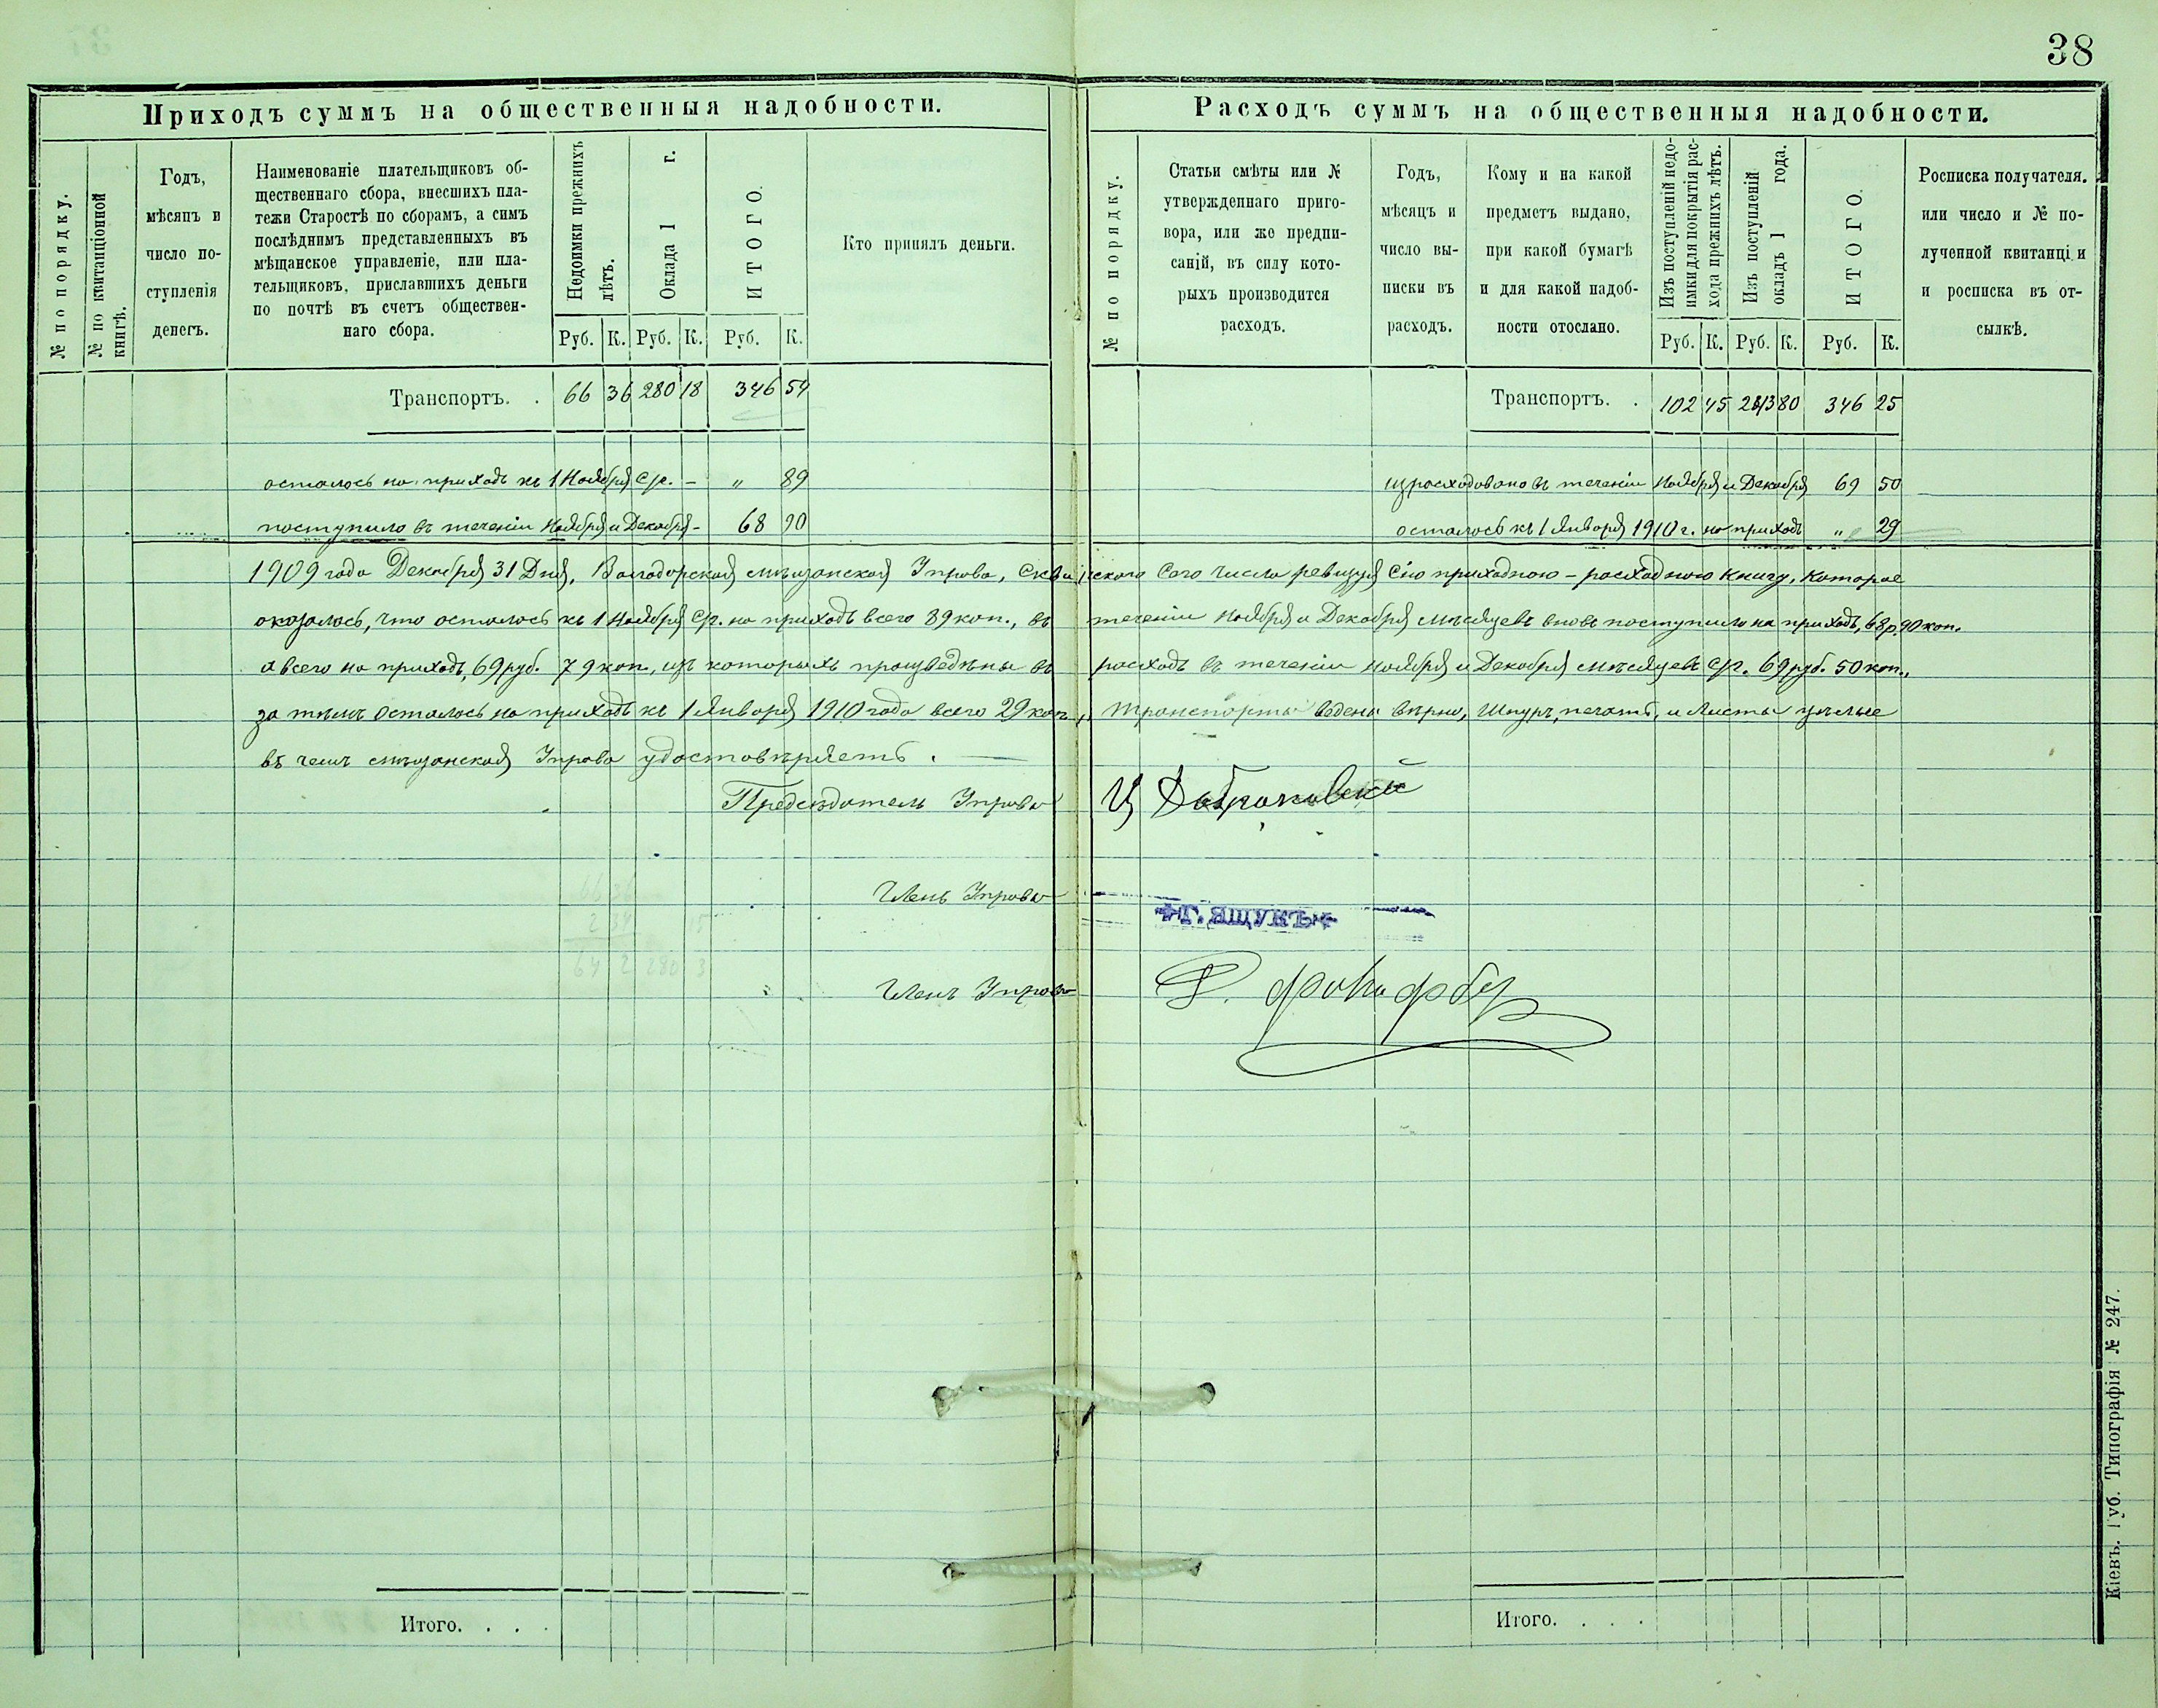 38
Приходъ суммъ на общественныя надобности.
№ по порядку.
№ по квитанціонной книгѣ.
Годъ,
мѣсяцъ и
число по-
ступленія
денегъ.
Наименованіе плательщиковъ об-
щественнаго сбора, внесшихъ пла-
тежи Старостѣ по сборамъ, а симъ
послѣднимъ представленныхъ въ
мѣщанское управленіе, или пла-
тельщиковъ, приславшихъ деньги
по почтѣ въ счетъ обществен-
наго сбора.
Недоимки прежнихъ
лѣтъ.
Оклада 1 г.
ИТОГО.
Руб. К. Руб. К. Руб. К.
Кто принялъ деньги.
Транспортъ. . 66 36 280 18 346 54
осталось на приходъ къ 1 Ноября с/г. - " 89
поступило въ теченіи Ноября и Декабря - 68 90
Расходъ суммъ на общественныя надобности.
№ по порядку.
Статьи смѣты или №
утвержденнаго приго-
вора, или же предпи-
саній, въ силу кото-
рыхъ производится
расходъ.
Годъ,
мѣсяцъ и
число вы-
писки въ
расходъ.
Кому и на какой
предметъ выдано,
при какой бумагѣ
и для какой надоб-
ности отослано.
Изъ поступленій недо-
имки для покрытія рас-
хода прежнихъ лѣтъ.
Изъ поступленій
окладъ 1 года.
ИТОГО.
Руб. К. Руб. К. Руб. К.
Росписка получателя.
или число и № по-
лученной квитанціи
и росписка въ от-
сылкѣ.
Транспортъ. . 102 45 243 80 346 25
израсходовано въ теченіи Ноября и Декабря 69 50
осталось къ 1 Января 1910 г. на приходъ " 29
1909 года Декабря 31 Дня, мѣщанская Управа, сего числа ревизуя сію приходною - расходною книгу, которое
оказалось, что осталось къ 1 Ноября с/г. на приходъ всего 89 коп., въ теченіи Ноября и Декабря мѣсяцевъ вновь поступило на приходъ, 68 р. 90 коп.
а всего на приходъ, 69 руб. 79 коп., изъ которыхъ произведены въ расходъ въ теченіи Ноября и Декабря мѣсяцевъ с/г. 69 руб. 50 коп.,
за тѣмъ осталось на приходъ къ 1 Января 1910 года всего 29 коп., транспорты ведены вѣрно, Шнуръ, печать, и листы цѣлые
въ чемъ мѣщанская Управа удостовѣряетъ.
Предсѣдатель Управы
Членъ Управы Г. ЯЩУКЪ
Членъ Управы
66 36
2 34 15
64 2 280 3
Итого. . . .
Итого. . . .
Кіевъ. Губ. Типографія № 247.